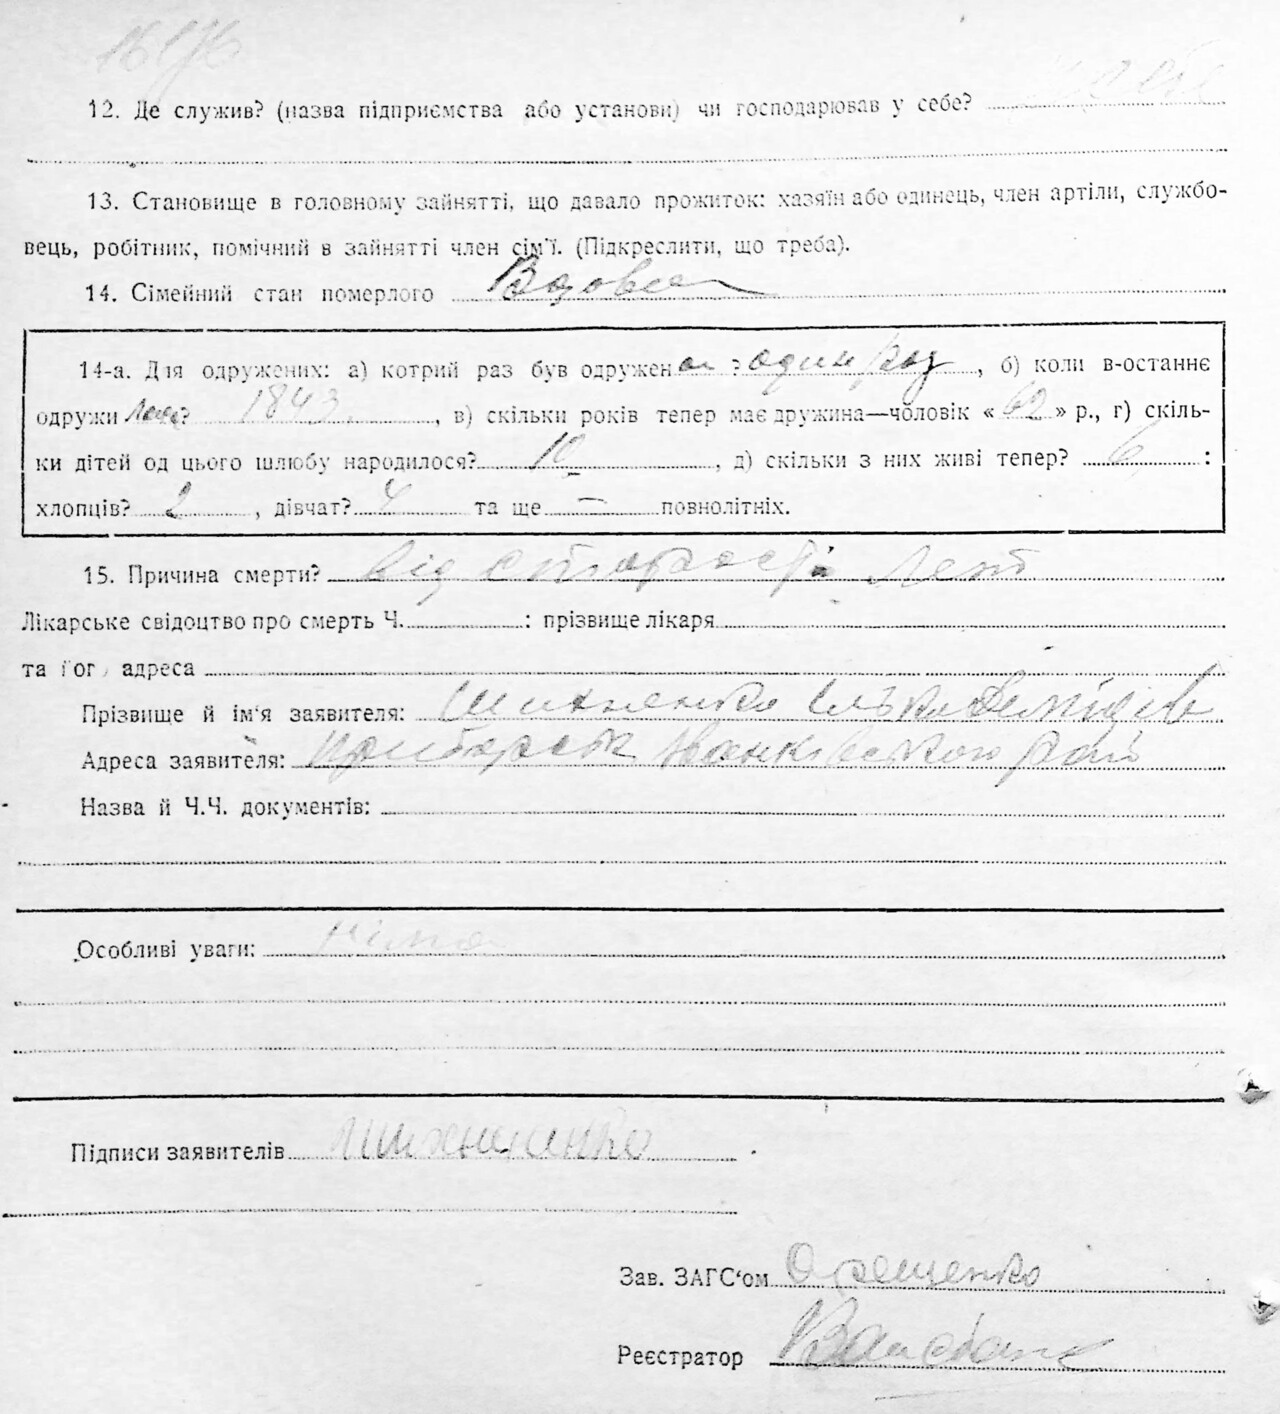 12. Де служив? (назва підприємства або установи) чи господарював у себе?
13. Становище в головному зайнятті, що давало прожиток: хазяїн або одинець, член артіли, службо-
вець, робітник, помічний в зайнятті член сім'ї. (Підкреслити, що треба).
14. Сімейний стан померлого Вдова
14-а. Для одружених: а) котрий раз був одружен ? один раз, б) коли в-останнє
одружи лась? 1843, в) скільки років тепер має дружина—чоловік « 62 » р., г) скіль-
ки дітей од цього шлюбу народилося? 10, д) скільки з них живі тепер? 6 :
хлопців? 2, дівчат? 4 та ще — повнолітніх.
15. Причина смерти? від старости Лет
Лікарське свідоцтво про смерть Ч. : прізвище лікаря
та його адреса
Прізвище й ім'я заявителя:
Адреса заявителя: Іванківського рай
Назва й Ч.Ч. документів:
Особливі уваги: нема
Підписи заявителів
Зав. ЗАГС'ом
Реєстратор